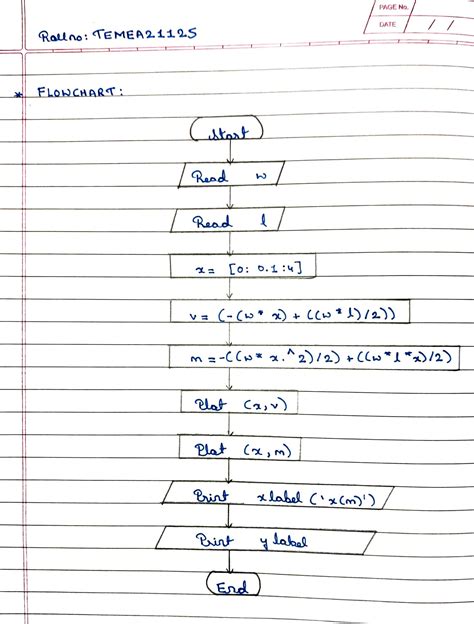 PAGE No.
DATE / /
Rollno: TEMEA21125
* FLOWCHART:
Start
Read w
Read l
x = [0: 0.1:4]
v = (-(w* x) + ((w*l)/2))
m = -((w* x.^2)/2) + ((w*l*x)/2)
Plot (x,v)
Plot (x,m)
Print xlabel ('x(m)')
Print ylabel
End